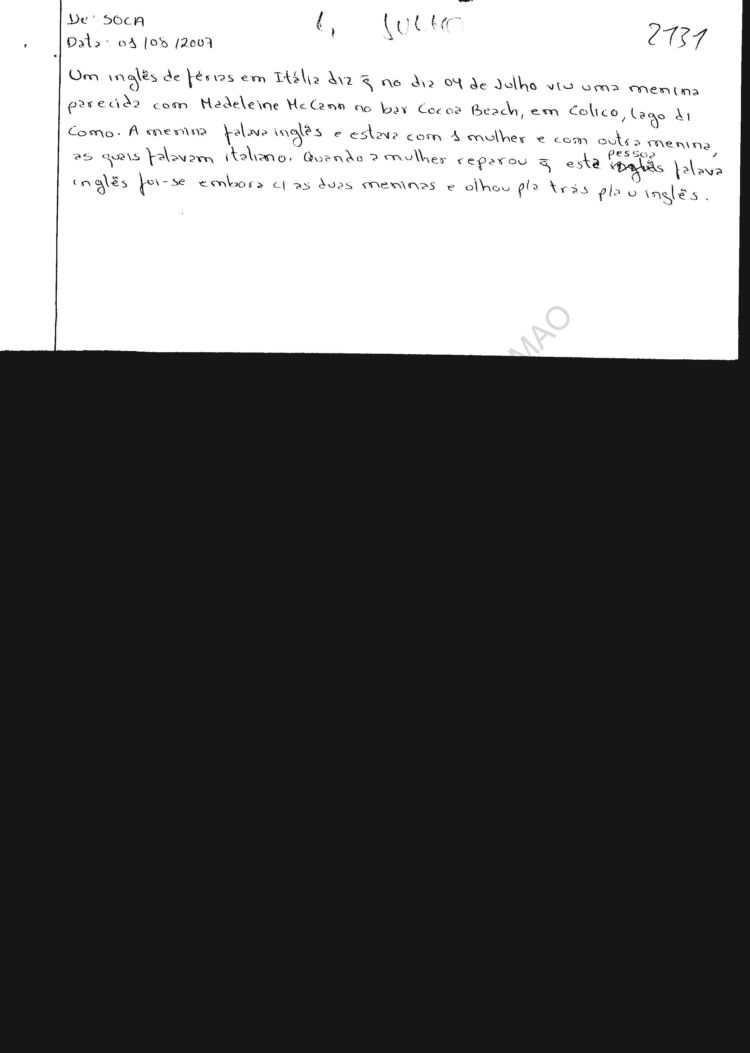 De: SOCA
Data: 01/08/2007
JULHO
2131
Um inglês de férias em Itália diz q̃ no dia 04 de Julho viu uma menina
parecida com Madeleine McCann no bar Cocoa Beach, em Colico, Lago di
Como. A menina falava inglês e estava com 1 mulher e com outra menina,
as quais falavam italiano. Quando a mulher reparou q̃ este pessoa falava
inglês foi-se embora c/ as duas meninas e olhou p/a trás p/a o inglês.
MAO